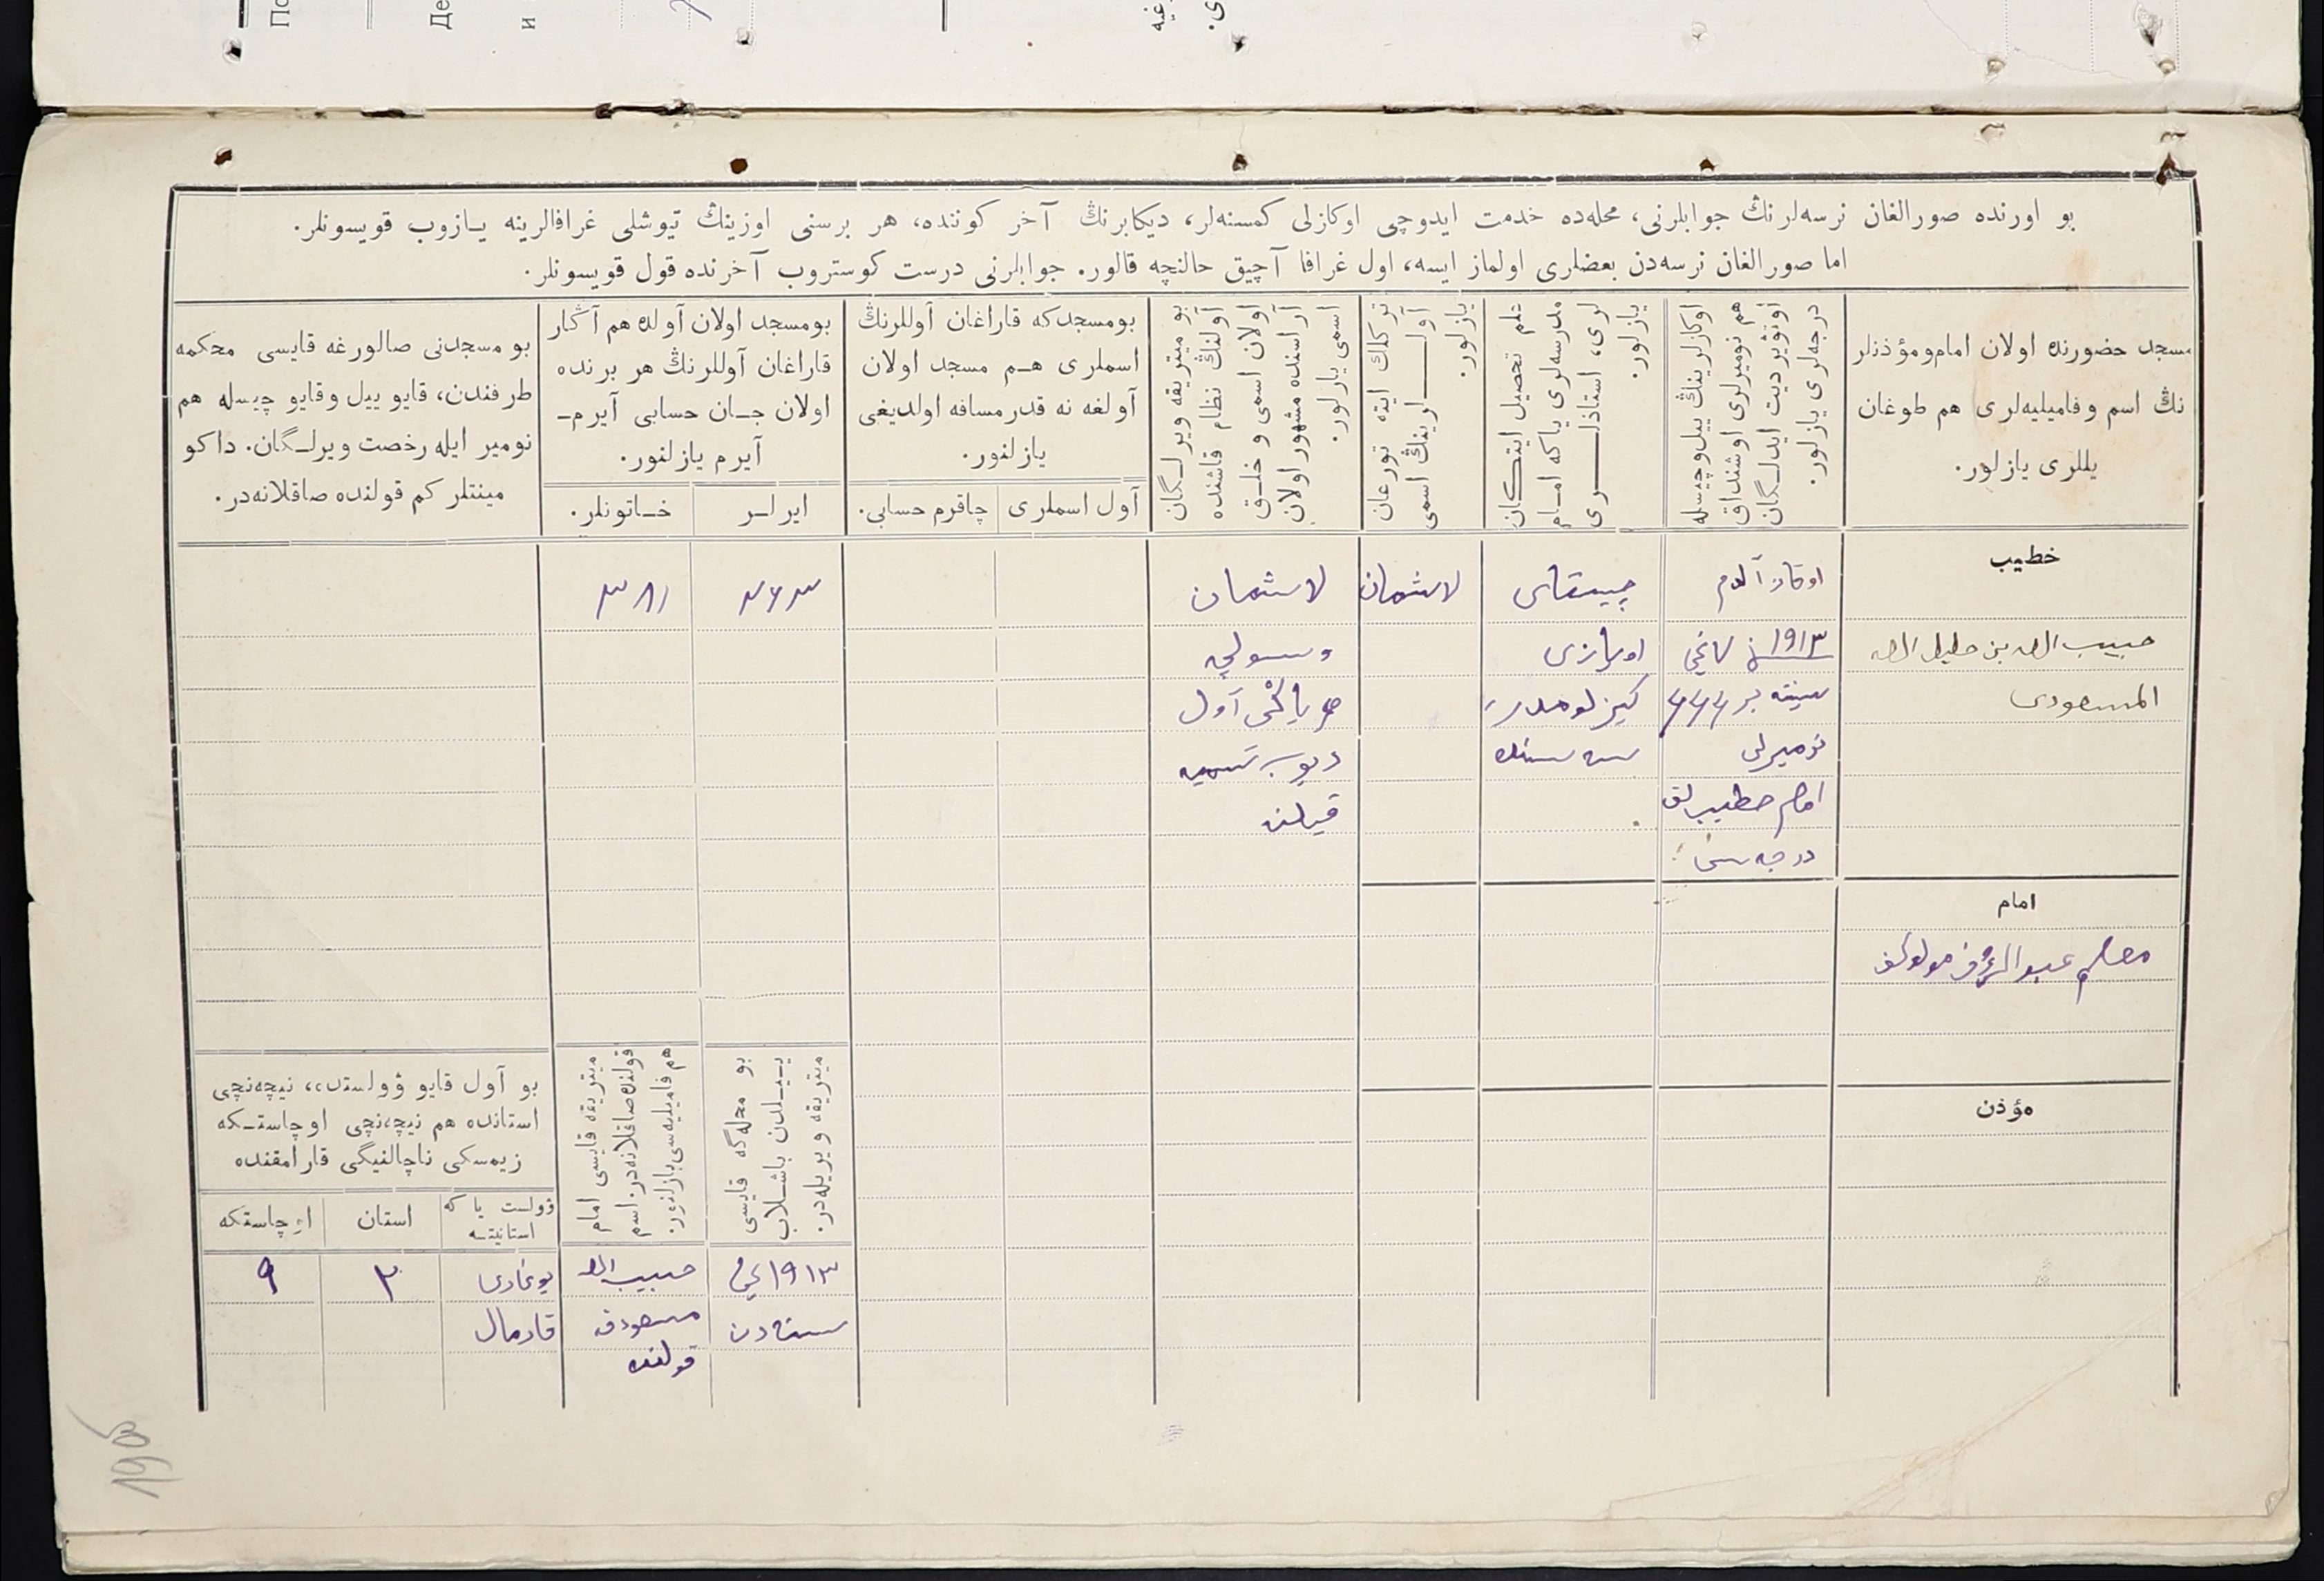 بو اورنده صورالغان نرسه‌لرنڭ جوابلرنی، محله‌ده خدمت ایدوچی اوکازلی کمسنه‌لر، دیکابرنڭ آخر کوننده، هر برسنی اوزینڭ تیوشلی غرافالرینه یازوب قویسونلر.
اما صورالغان نرسه‌دن بعضلری اولماز ایسه، اول غرافا آچیق حالنچه قالور. جوابلرنی درست کوستروب آخرنده قول قویسونلر.
مسجد حضورنده اولان امام و مؤذنلر
نڭ اسم و فامیلیه‌لری هم طوغان
یللری یازلور.
اوکازلرینڭ ییل و چیسله
هم نومیرلری اوشنداق
اوتویردیت ایدلگان
درجه‌لری یازلور.
علم تحصیل ایتکان
مدرسه‌لری یاکه امام
لری، استاذلری
یازلور.
تركلك ایته تورغان
آوللرینڭ اسمی
یازلور.
بو میتریقه ویرلگان
آولنڭ نظام قاشنده
اولان اسمی و خلق
آراسنده مشهور اولان
اسمی یازلور.
بو مسجدکه قاراغان آوللرنڭ
اسملری هم مسجد اولان
آولغه نه قدر مسافه اولدیغی
یازلنور.
آول اسملری
چاقرم حسابی.
بو مسجد اولان آولده هم آڭار
قاراغان آوللرنڭ هر برنده
اولان جان حسابی آیرم-
آیرم یازلنور.
ایرلر
خاتونلر.
بو مسجدنی صالورغه قایسی محکمه
طرفندن، قایو ییل و قایو چیسله هم
نومیر ایله رخصت ویرلگان. داکو
مینتلر کم قولنده صاقلانه‌در.
خطیب
حبیب الله بن خلیل الله
المسعودی
اوکاز آلدم
١٩١٣ نچی
سنته بر ٦٦٦
نومیرلی
امام خطیبلق
درجه‌سی
چیستای
اویازی
کیزلو مدر
سه‌سنده
لاشمان
لاشمان
آول
دیوب تسمیه
قیلنه
٣٦٣
٣٨١
امام
معلم عبدالرؤف
مؤذن
بو محله‌گه قایسی
ییلدن باشلاب
میتریقه ویریله‌در.
میتریقه قایسی امام
قولنده صاقلانه‌در. اسم
هم فامیلیه‌سی یازلنور.
بو آول قایو ۋولستده، نیچه‌نچی
استانده هم نیچه‌نچی اوچاستکه
زیمسکی ناچالنیگی قارامقنده
ۋولست یا که
استانیتسه
استان
اوچاستکه
١٩١٣ نچی
سنه‌دن
حبیب الله
مسعودف
قولنده
یوغاری
قارمال
٢
٩